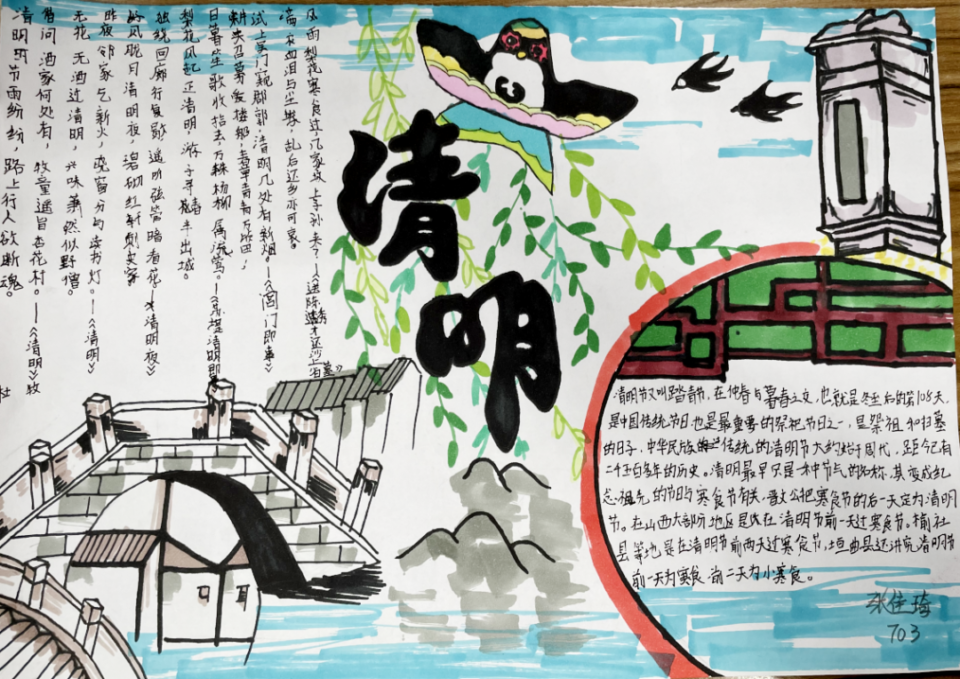 清明时节雨纷纷,路上行人欲断魂。
借问酒家何处有,牧童遥指杏花村。—《清明》杜牧
无花无酒过清明,兴味萧然似野僧。
昨夜邻家乞新火,晓窗分与读书灯。—《清明》
好风胧月清明夜,碧砌红轩刺史家。
独绕回廊行复歇,遥听弦管暗看花。—《清明夜》
梨花风起正清明,游子寻春半出城。
日暮笙歌收拾去,万株杨柳属流莺。—《苏堤清明即事》
耕夫召募爱楼船,春草青青万项田;
试上吴门窥郡郭,清明几处有新烟。—《闾门即事》
满衣血泪与尘埃,乱后还乡亦可哀。
风雨梨花寒食过,几家坟上子孙来?—《送陈秀才还沙上省墓》
清明
清明节又叫踏青节,在仲春与暮春之交,也就是冬至后的第108天,
是中国传统节日也是最重要的祭祀节日之一,是祭祖和扫墓
的日子,中华民族传统的清明节大约始于周代,距今已有
二千五百多年的历史。清明最早只是一种节气的名称,其变成纪
念祖先的节日与寒食节有关,晋文公把寒食节的后一天定为清明
节。在山西大部份地区是在清明节前一天过寒食节。榆社
县等地是在清明节前两天过寒食节,垣曲县还讲究清明节
前一天为寒食 前二天为小寒食。
张佳琦
703